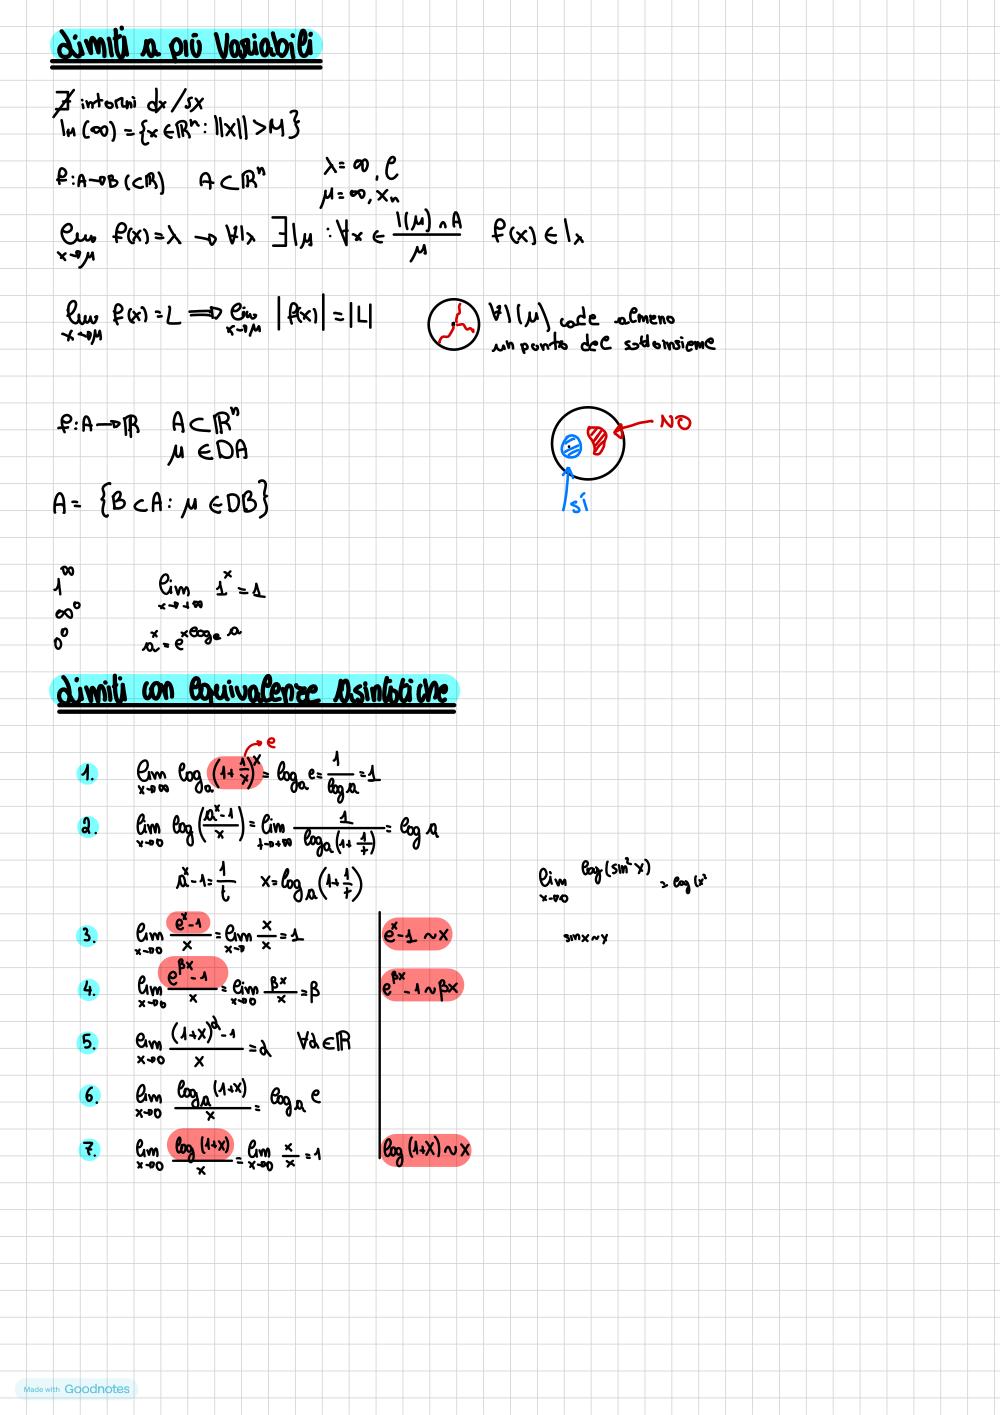 Limiti a più Variabili
∄ intorni dx/sx
I_M(∞) = {x ∈ ℝⁿ: ||x|| > M}
f: A→B (⊂ℝ)   A ⊂ ℝⁿ   λ = ∞, ℓ
μ = ∞, xₙ
lim_{x→μ} f(x) = λ → ∀I_λ ∃ I_μ : ∀x ∈ (I(μ) ∩ A)/μ   f(x) ∈ I_λ
lim_{x→μ} f(x) = L ⟹ lim_{x→μ} |f(x)| = |L|   ∀I(μ) cade almeno
un punto del sottoinsieme
f: A→ℝ   A ⊂ ℝⁿ
μ ∈ DA
NO
A = {B ⊂ A: μ ∈ DB}
sí
1^∞   lim_{x→+∞} 1^x = 1
∞^0
0^0   a^x = e^{x log_e a}
Limiti con equivalenze Asintotiche
e
1. lim_{x→∞} log_a (1 + 1/x)^x = log_a e = 1/log a = 1
2. lim_{x→0} log ((a^x - 1)/x) = lim_{t→+∞} 1/(log_a (1 + 1/t)) = log a
a^x - 1 = 1/t   x = log_a (1 + 1/t)
lim_{x→0} log (sin² x) = log (x²
3. lim_{x→0} (e^x - 1)/x = lim_{x→} x/x = 1   e^x - 1 ~ x
sin x ~ x
4. lim_{x→0} (e^{βx} - 1)/x = lim_{x→0} βx/x = β   e^{βx} - 1 ~ βx
5. lim_{x→0} ((1+x)^α - 1)/x = α   ∀α ∈ ℝ
6. lim_{x→0} log_a (1+x)/x = log_a e
7. lim_{x→0} log (1+x)/x = lim_{x→0} x/x = 1   log (1+x) ~ x
Made with Goodnotes